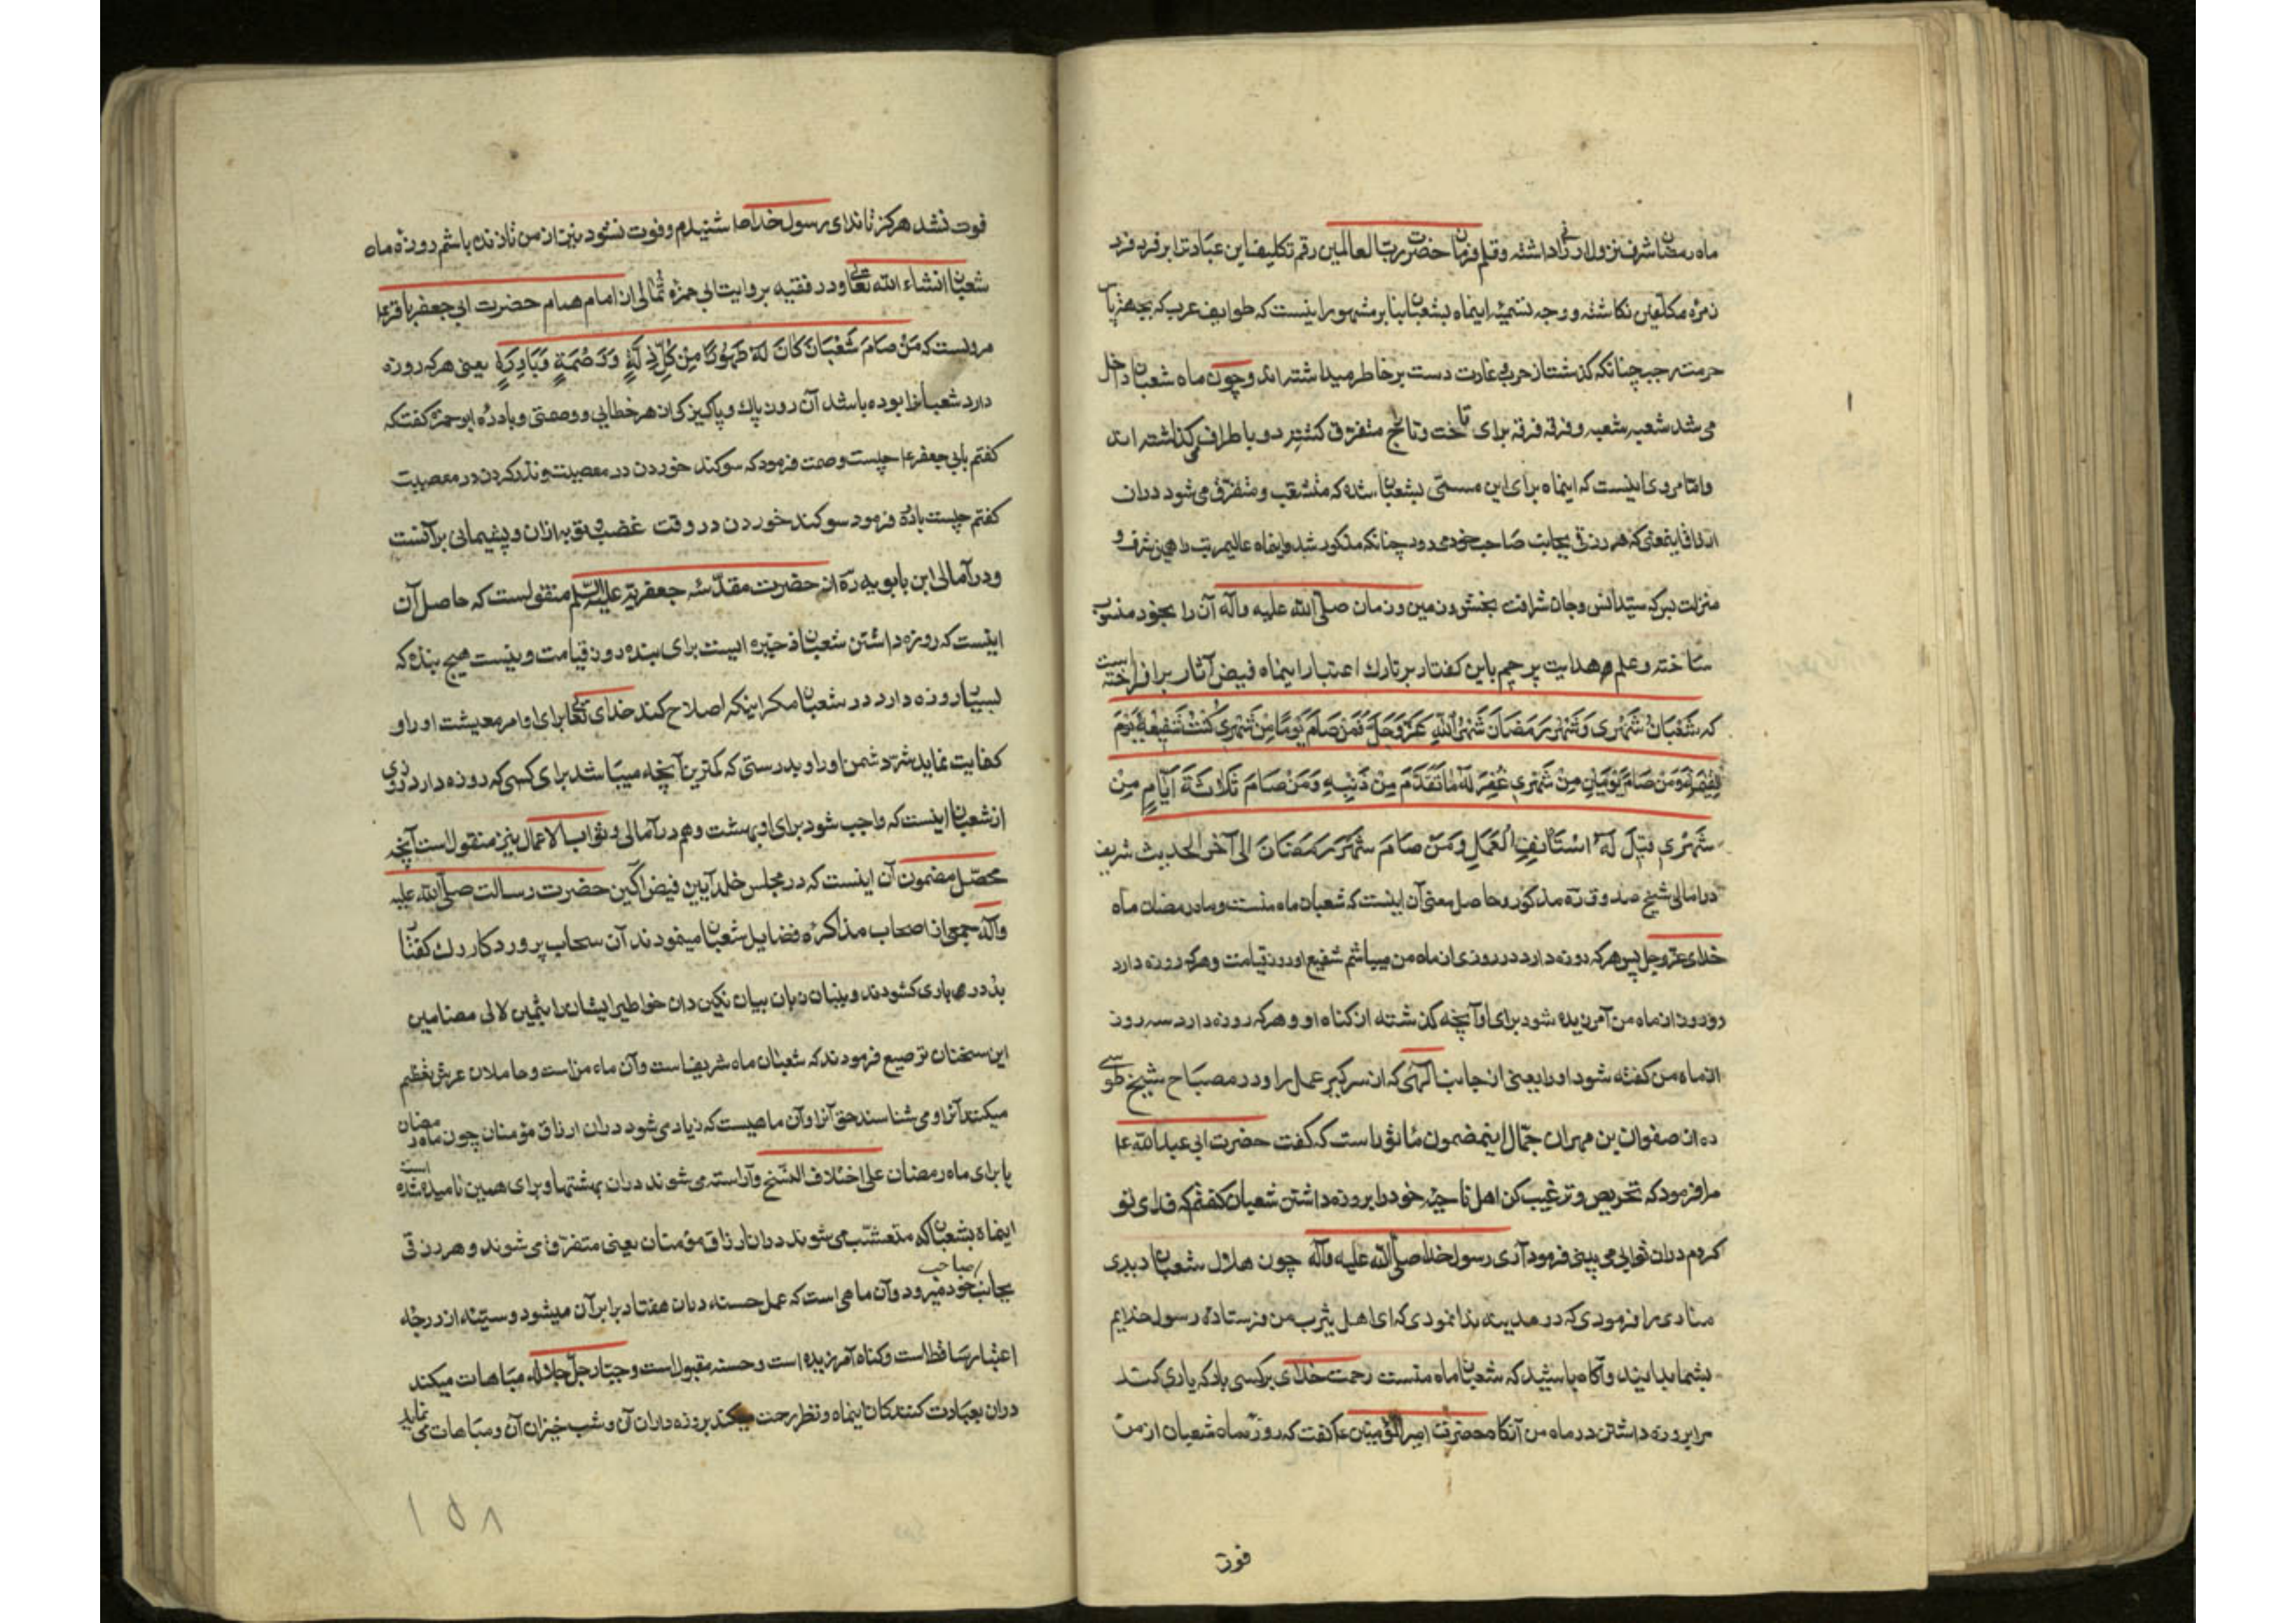 ماه رمضان شرف نزول ارزانی داشته و قلم فرمان حضرت رب العالمین رقم تکلیف این عبادت را بر فرد فرد
زمره مکلفین نکاشته و وجه تسمیه اینماه بشعبان بنابر مشهور اینست که طوایف عرب که بجهة پاس
حرمت رجب چنانکه کذشت از حرب و غارت دست بر خاطر میداشته اند و چون ماه شعبان داخل
می شد شعبه شعبه و فرقه فرقه برای تاخت و تالنج متفرق کشته رو باطراف کذاشته اند
و اما مروی اینست که اینماه برای این مسمی بشعبان شده که متشعب و متفرق می شود دران
ارزاق اینمعنی که هر رزقی بجانب صاحب خود میرود چنانکه مذکور شد و اینماه عالیمرتبت را همین شرف و
منزلت بس که سید انس و جان شرافت بخش زمین و زمان صلی الله علیه و آله آن را بخود منسوب
ساخته و علم هدایت پرچم باین کفتار بر تارک اعتبار اینماه فیض آثار برافراخته است
که شَعْبَانُ شَهْرِی وَ شَهْرُ رَمَضَانَ شَهْرُ اللّٰهِ عَزَّ وَ جَلَّ فَمَنْ صَامَ یَوْمًا مِنْ شَهْرِی کُنْتُ شَفِیعَهُ یَوْمَ
الْقِیٰمَةِ وَ مَنْ صَامَ یَوْمَیْنِ مِنْ شَهْرِی غُفِرَ لَهُ مَا تَقَدَّمَ مِنْ ذَنْبِهِ وَ مَنْ صَامَ ثَلَاثَةَ اَیَّامٍ مِنْ
شَهْرِی قِیلَ لَهُ اسْتَانِفِ الْعَمَلَ وَ مَنْ صَامَ شَهْرَ رَمَضَانَ الی آخر الحدیث شریف
در امالی شیخ صدوق ره مذکور و حاصل معنی آن اینست که شعبان ماه منست و ماه رمضان ماه
خدای عز و جل پس هرکه روزه دارد در روزی از ماه من میباشم شفیع او روز قیامت و هرکه روزه دارد
دو روز از ماه من آمرزیده شود برای او آنچه کذشته از کناه او و هرکه روزه دارد سه روز
از ماه من کفته شود او را یعنی از جانب الهی که از سر کیر عمل را و در مصباح شیخ طوسی
ره از صفوان بن مهران جمال اینمضمون مأثور است که کفت حضرت ابی عبد الله ع
مرا فرمود که تحریص و ترغیب کن اهل ناحیه خود را بر روزه داشتن شعبان کفتم که فدای تو
کردم دران ثوابی می بینی فرمود آری رسول خدا صلی الله علیه و آله چون هلال شعبان دیدی
منادی را فرمودی که در مدینه ندا نمودی که ای اهل یثرب من فرستاده رسول خدایم
بشما بدانید و آکاه باشید که شعبان ماه منست رحمت خدای بر کسی باد که یاری کند
مرا بر روزه داشتن در ماه من آنکاه حضرت امیر المؤمنین ع کفت که روزه ماه شعبان از من
فوت
فوت نشد هرکز تا ندای رسول خدا ص شنیدم و فوت نشود نیز از من تا زنده باشم روزه ماه
شعبان انشاء الله تعالی و در فقیه بروایت ابی حمزه ثمالی از امام همام حضرت ابی جعفر باقر ع
مرویست که مَنْ صَامَ شَعْبَانَ کَانَ لَهُ طَهُورًا مِنْ کُلِّ زَلَّةٍ وَ وَصْمَةٍ وَ بَادِرَةٍ یعنی هرکه روزه
دارد شعبانرا بوده باشد آن روزه پاک و پاکیزکی از هر خطایی و وصمتی و بادره ابو حمزه کفت که
کفتم بابی جعفر ع چیست وصمت فرمود که سوکند خوردن در معصیت و نذر کردن در معصیت
کفتم چیست بادره فرمود سوکند خوردن در وقت غضب و توبه ازان و پشیمانی برآنست
و در آمالی ابن بابویه ره از حضرت مقدسه جعفریه علیه السلم منقولست که حاصل آن
اینست که روزه داشتن شعبان ذخیره ایست برای بنده روز قیامت و نیست هیچ بنده که
بسیار روزه دارد در شعبان مکر اینکه اصلاح کند خدای تعالی برای او امر معیشت او را و
کفایت نماید شر دشمن او را و بدرستی که کمترین آنچه میباشد برای کسی که روزه دارد روزی
از شعبان اینست که واجب شود برای او بهشت و هم در آمالی و ثواب الاعمال نیز منقول است آنچه
محصل مضمون آن اینست که در مجلس خلد آیین فیض آکین حضرت رسالت صلی الله علیه
و آله جمعی از اصحاب مذاکره فضایل شعبان مینمودند آن سحاب پروردکار درک کفتار
بدرر باری کشودند و بنیان زبان بیان نکین دان خواطر ایشان را بثمین لالی مضامین
این سخنان ترصیع فرمودند که شعبان ماه شریف است و آن ماه من است و حاملان عرش تعظیم
میکنند آنرا و می شناسند حق آنرا و آن ماهیست که زیاد می شود دران ارزاق مؤمنان چون ماه رمضان
یا برای ماه رمضان علی اختلاف النسخ و آراسته می شوند دران بهشتها و برای همین نامیده شده است
اینماه بشعبان که متشعب می شوند دران ارزاق مؤمنان یعنی متفرق می شوند و هر رزقی
بجانب صاحب خود میرود و آن ماهی است که عمل حسنه دران هفتاد برابر آن میشود و سیئه از درجه
اعتبار ساقط است و کناه آمرزیده است و حسنه مقبول است و جبار جل جلاله مباهات میکند
دران بعبادت کنندکان اینماه و نظر رحمت میکند بروزه داران آن و شب خیزان آن و مباهات می نماید
١٥٨